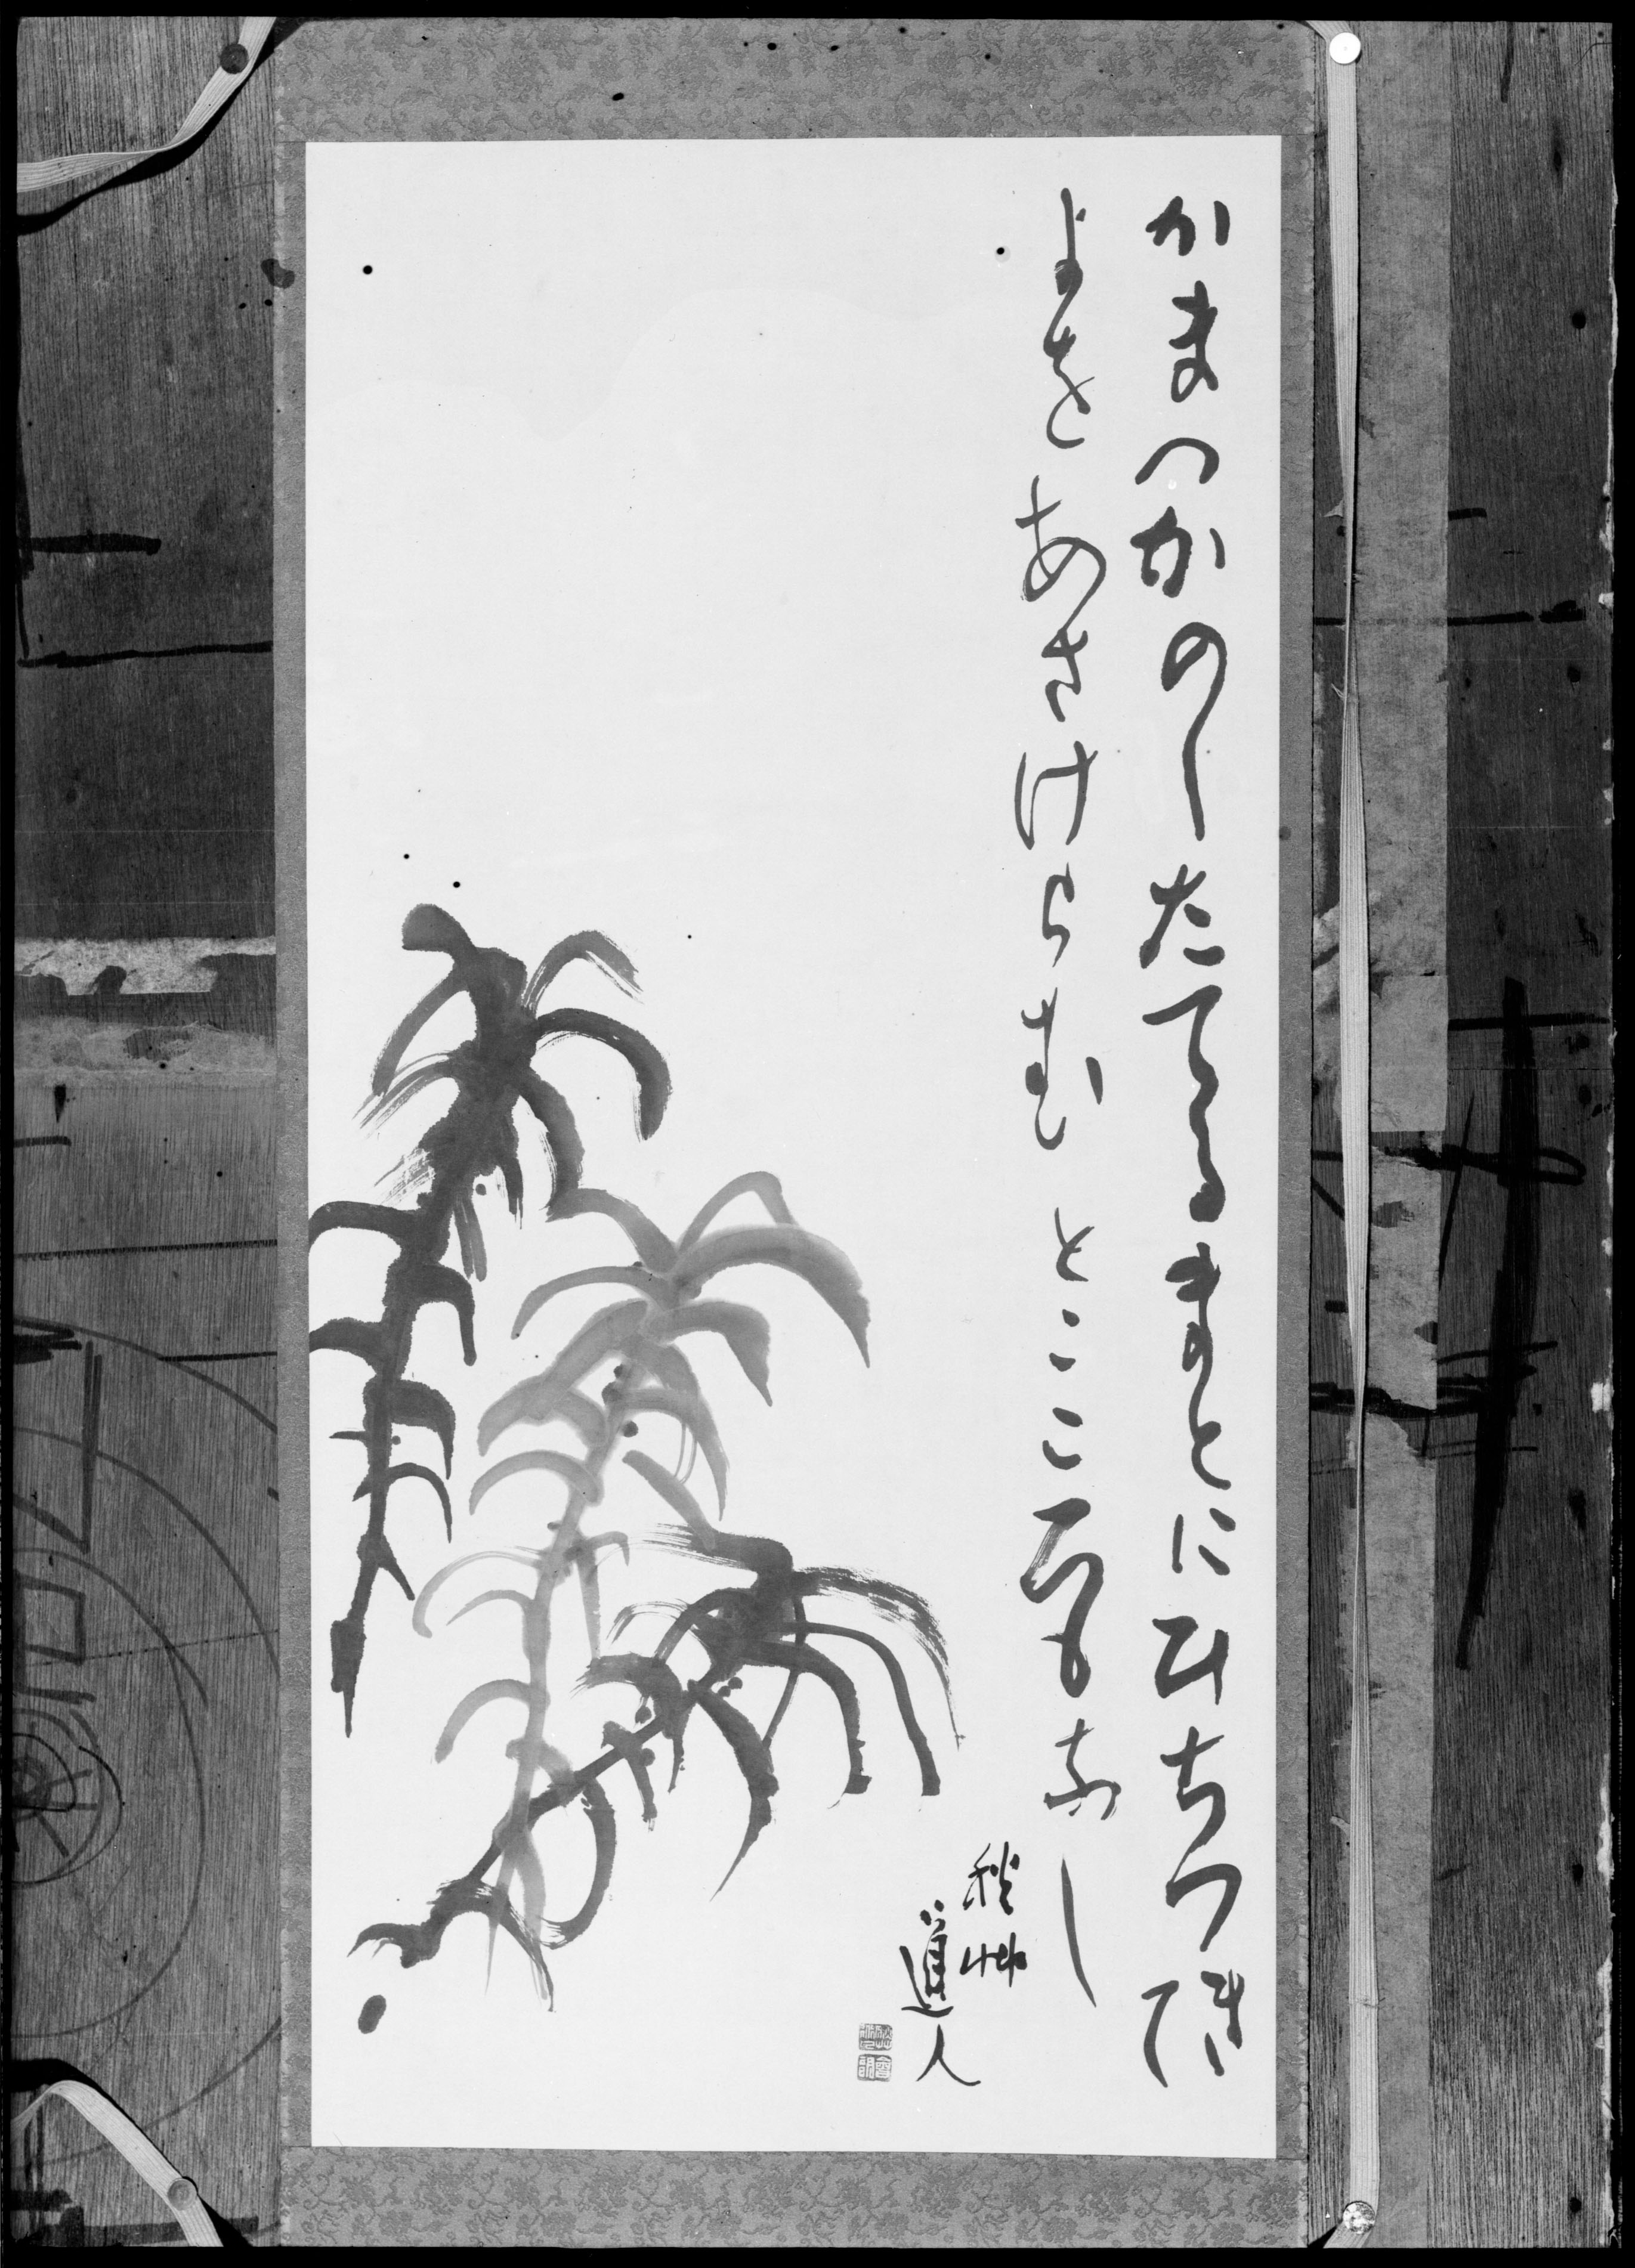 かまつかのしたてるまとにひちつきて
よをあさけらむとこころもなし
秋艸
道人